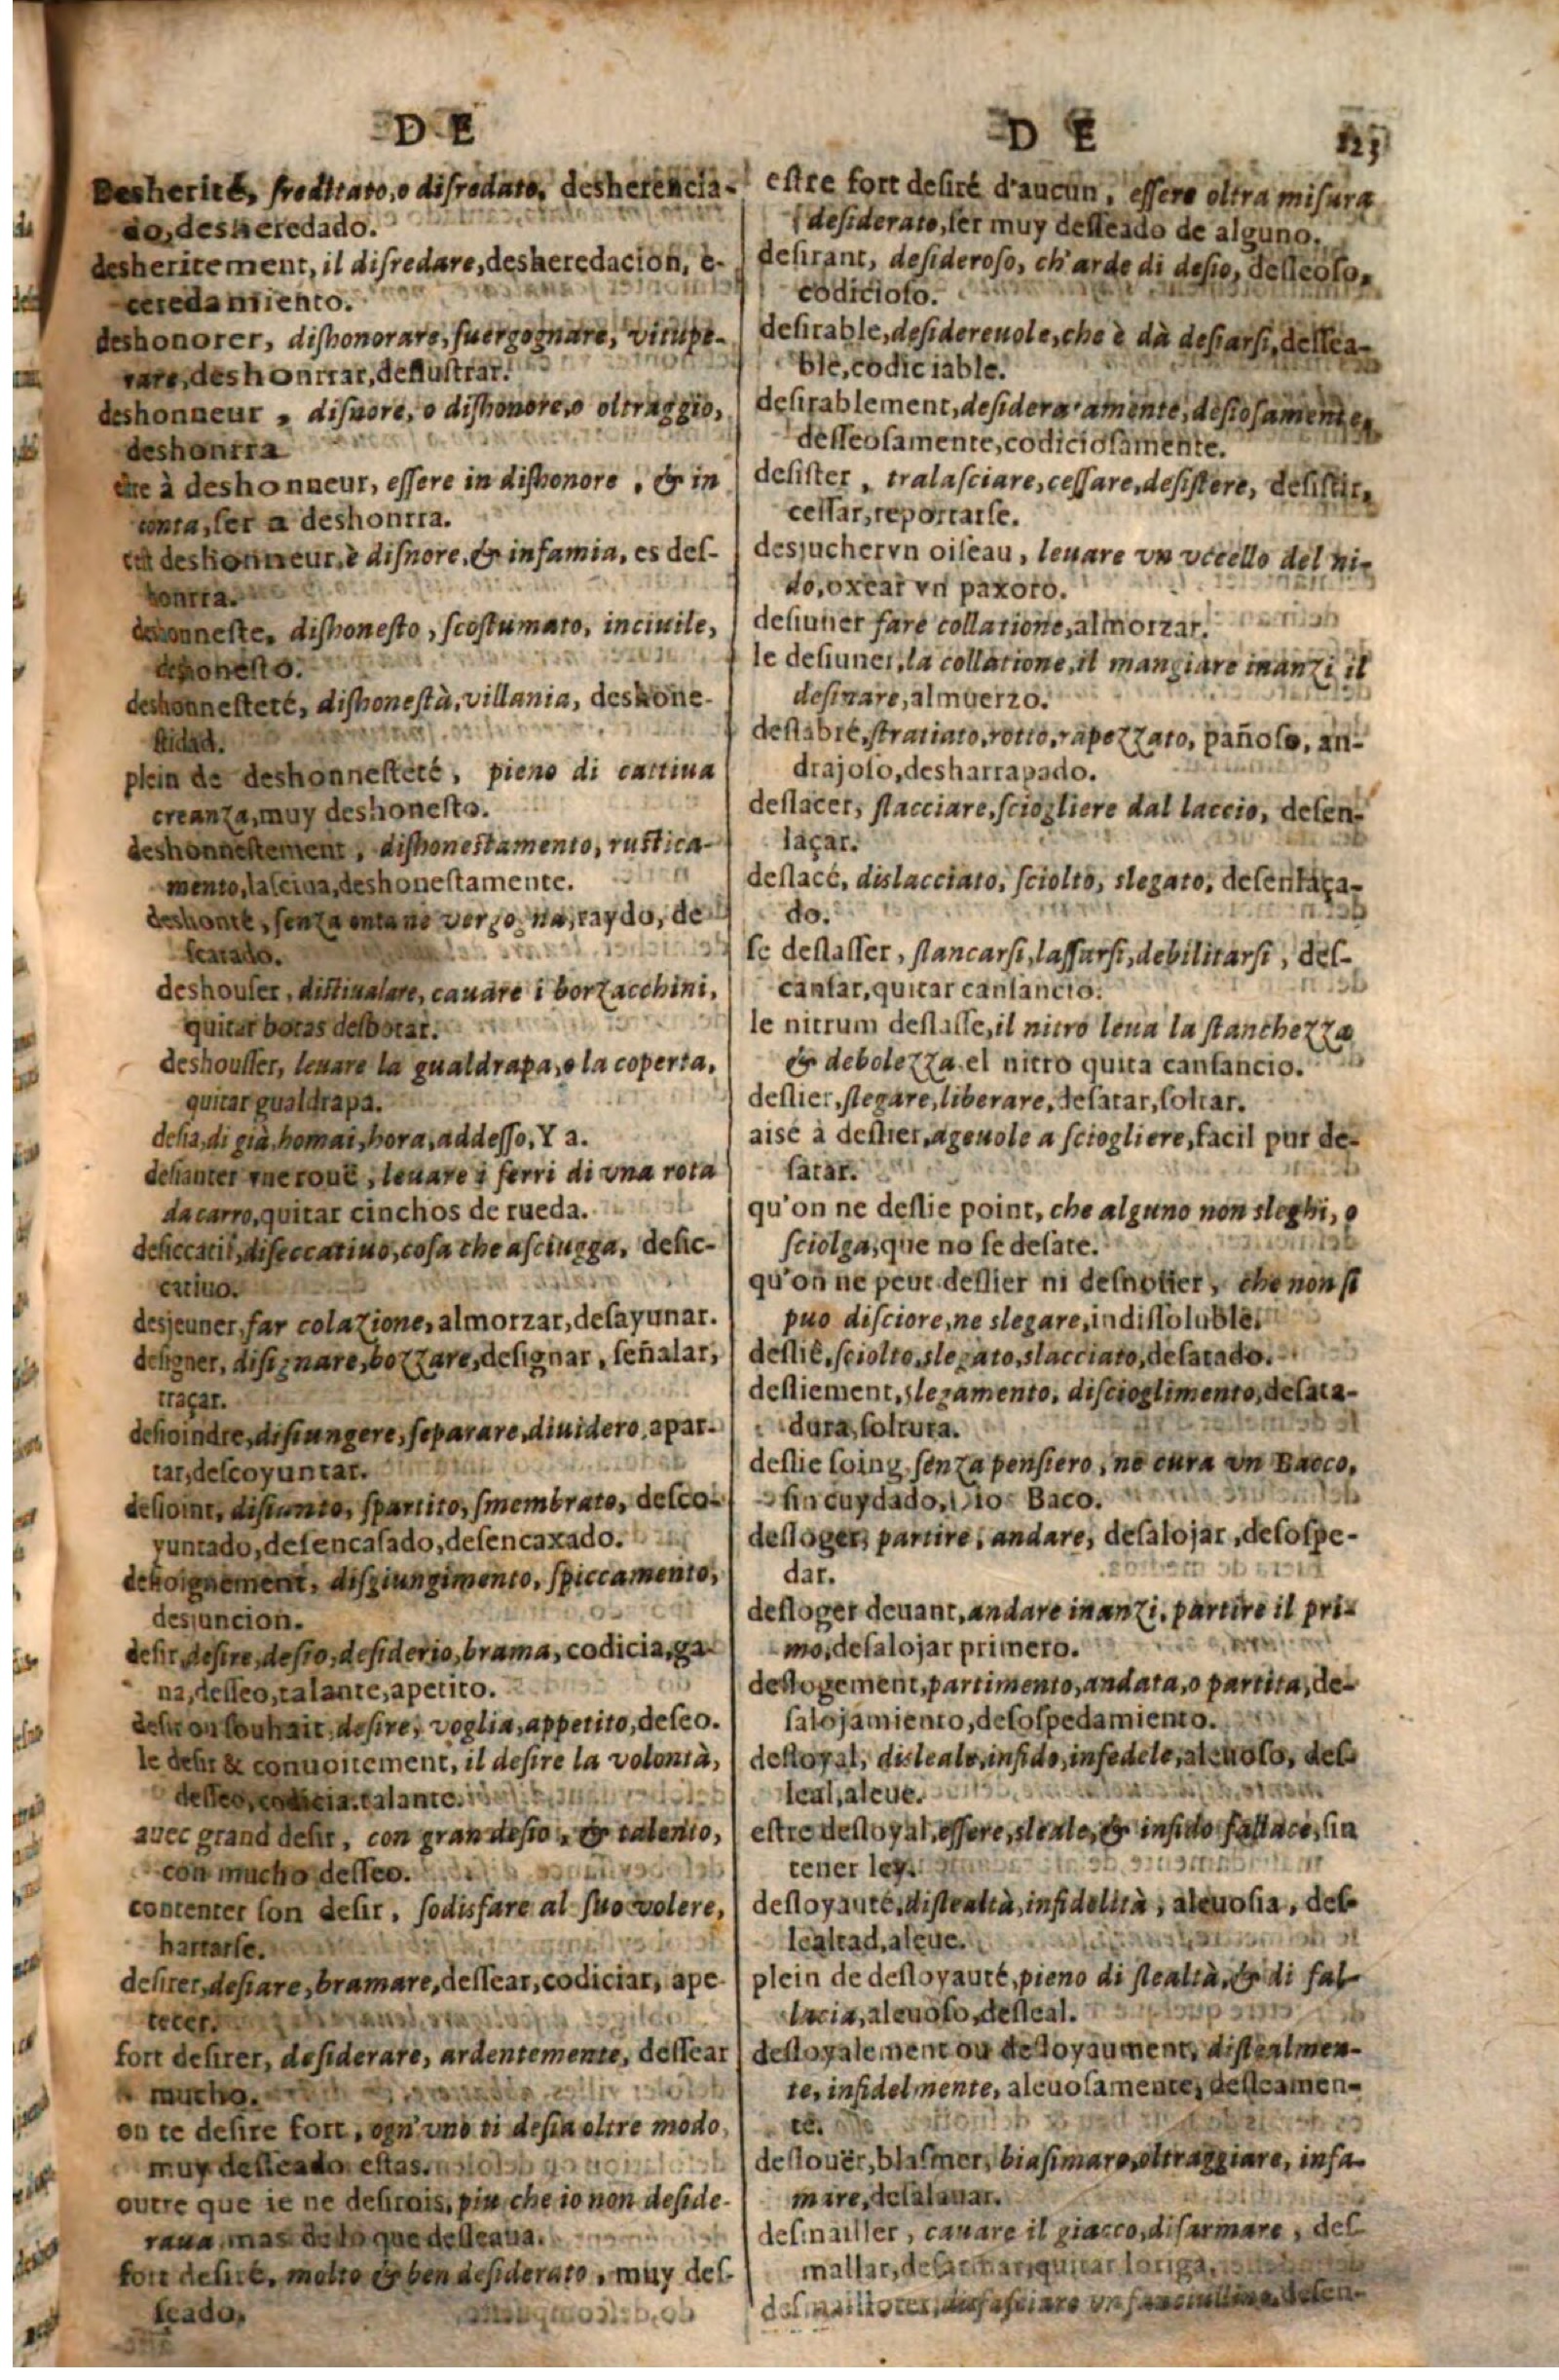 D E
Desherité, sreditato, o disredato, desherencia-
do, desheredado.
desheritement, il disredare, desheredacion, e-
ceredamiento.
deshonorer, dishonorare, suergognare, vitupe-
rare, deshonrrar, deslustrar.
deshonneur, disnore, o dishonore, o oltraggio,
deshonrra
être à deshonneur, essere in dishonore, & in
onta, ser a deshonrra.
c'est deshonneur, è disnore, & infamia, es des-
honrra.
deshonneste, dishonesto, scostumato, inciuile,
deshonesto.
deshonnesteté, dishonestà, villania, deshone-
stidad.
plein de deshonnesteté, pieno di cattiua
creanza, muy deshonesto.
deshonnestement, dishonestamento, rustica-
mento, lasciua, deshonestamente.
deshonté, senza onta nè vergogna, raydo, de
scarado.
deshouser, distiualare, cauare i borzacchini,
quitar botas desbotar.
deshousser, leuare la gualdrapa, o la coperta,
quitar gualdrapa.
desia, di già, homai, hora, addesso, Y a.
desianter vne rouë, leuare i ferri di vna rota
da carro, quitar cinchos de rueda.
desiccatif, diseccatiuo, cosa che asciugga, desic-
catiuo.
desjeuner, far colazione, almorzar, desayunar.
designer, disignare, bozzare, designar, señalar,
traçar.
desioindre, disiungere, separare, diuidero, apar-
tar, descoyuntar.
desioint, disiunto, spartito, smembrato, desco-
yuntado, desencasado, desencaxado.
desioignement, disgiungimento, spiccamento,
desjuncion.
desir, desire, desio, desiderio, brama, codicia, ga-
na, desseo, talante, apetito.
desir ou souhait, desire, voglia, appetito, deseo.
le desir & conuoitement, il desire la volontà,
desseo, codicia, talante.
auec grand desir, con gran desio, & talento,
con mucho desseo.
contenter son desir, sodisfare al suo volere,
hartarse.
desirer, desiare, bramare, dessear, codiciar, ape-
tecer.
fort desirer, desiderare, ardentemente, dessear
mucho.
on te desire fort, ogn'vno ti desia oltre modo,
muy desseado estas.
outre que ie ne desirois, piu che io non deside-
raua, mas de lo que desseaua.
fort desiré, molto & ben desiderato, muy des-
seado,
D E 123
estre fort desiré d'aucun, essere oltra misura
desiderato, ser muy desseado de alguno.
desirant, desideroso, ch'arde di desio, desseoso,
codicioso.
desirable, desidereuole, che è dà desiarsi, dessea-
ble, codiciable.
desirablement, desideratamente, desiosamente,
desseosamente, codiciosamente.
desister, tralasciare, cessare, desistere, desistir,
cessar, reportarse.
desjucher vn oiseau, leuare vn vccello del ni-
do, oxear vn paxoro.
desiuner fare collatione, almorzar.
le desiuner, la collatione, il mangiare inanzi il
desinare, almuerzo.
deslabré, stratiato, rotto, rapezzato, pañoso, an-
drajoso, desharrapado.
deslacer, slacciare, sciogliere dal laccio, desen-
laçar.
deslacé, dislacciato, sciolto, slegato, desenlaça-
do.
se deslasser, stancarsi, lassarsi, debilitarsi, des-
cansar, quitar cansancio.
le nitrum deslasse, il nitro leua la stanchezza
& debolezza. el nitro quita cansancio.
deslier, slegare, liberare, desatar, soltar.
aisé à deslier, ageuole a sciogliere, facil pur de-
satar.
qu'on ne deslie point, che alguno non sleghi, o
sciolga, que no se desate.
qu'on ne peut deslier ni desnoüer, che non si
puo disciore, ne slegare, indissoluble.
deslié, sciolto, slegato, slacciato, desatado.
desliement, slegamento, discioglimento, desata-
dura, soltura.
deslie soing, senza pensiero, ne cura vn Bacco,
sin cuydado, Dio Baco.
desloger, partire, andare, desalojar, desospe-
dar.
desloger deuant, andare inanzi, partire il pri-
mo, desalojar primero.
deslogement, partimento, andata, o partita, de-
salojamiento, desospedamiento.
desloyal, disleale, infido, infedele, aleuoso, des-
leal, aleue.
estre desloyal, essere, sleale, & infido fallace, sin
tener ley.
desloyauté, dislealtà, infidelità, aleuosia, des-
lealtad, aleue.
plein de desloyauté, pieno di slealtà, & di fal-
lacia, aleuoso, desleal.
desloyalement ou desloyaument, dislealmen-
te, infidelmente, aleuosamente, desleamen-
te.
deslouër, blasmer, biasimare, oltraggiare, infa-
mare, desalauar.
desmailler, cauare il giacco, disarmare, des-
mallar, desarmar, quitar loriga.
desmailloter, disfasciare vn fanciullino, desen-